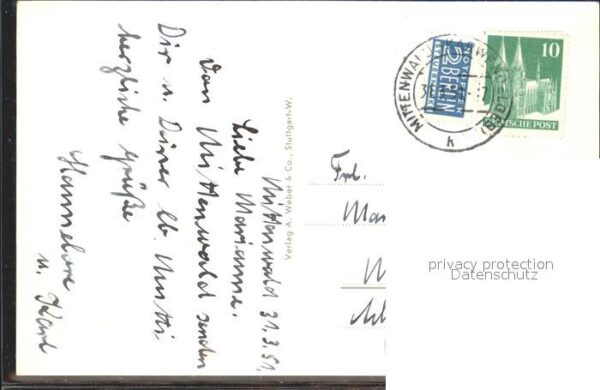 Mittenwald 31.3.51.
Liebe Marianne.
Von Mittenwald senden
Dir u. Deiner lb. Mutti
herzliche Grüße
Hannelore
u. Karl
Verlag A. Weber & Co., Stuttgart-W.
NOTOPFER
2 BERLIN
STEUERMARKE
MITTENWALD
10
DEUTSCHE POST
Frl.
Mar
privacy protection
Datenschutz